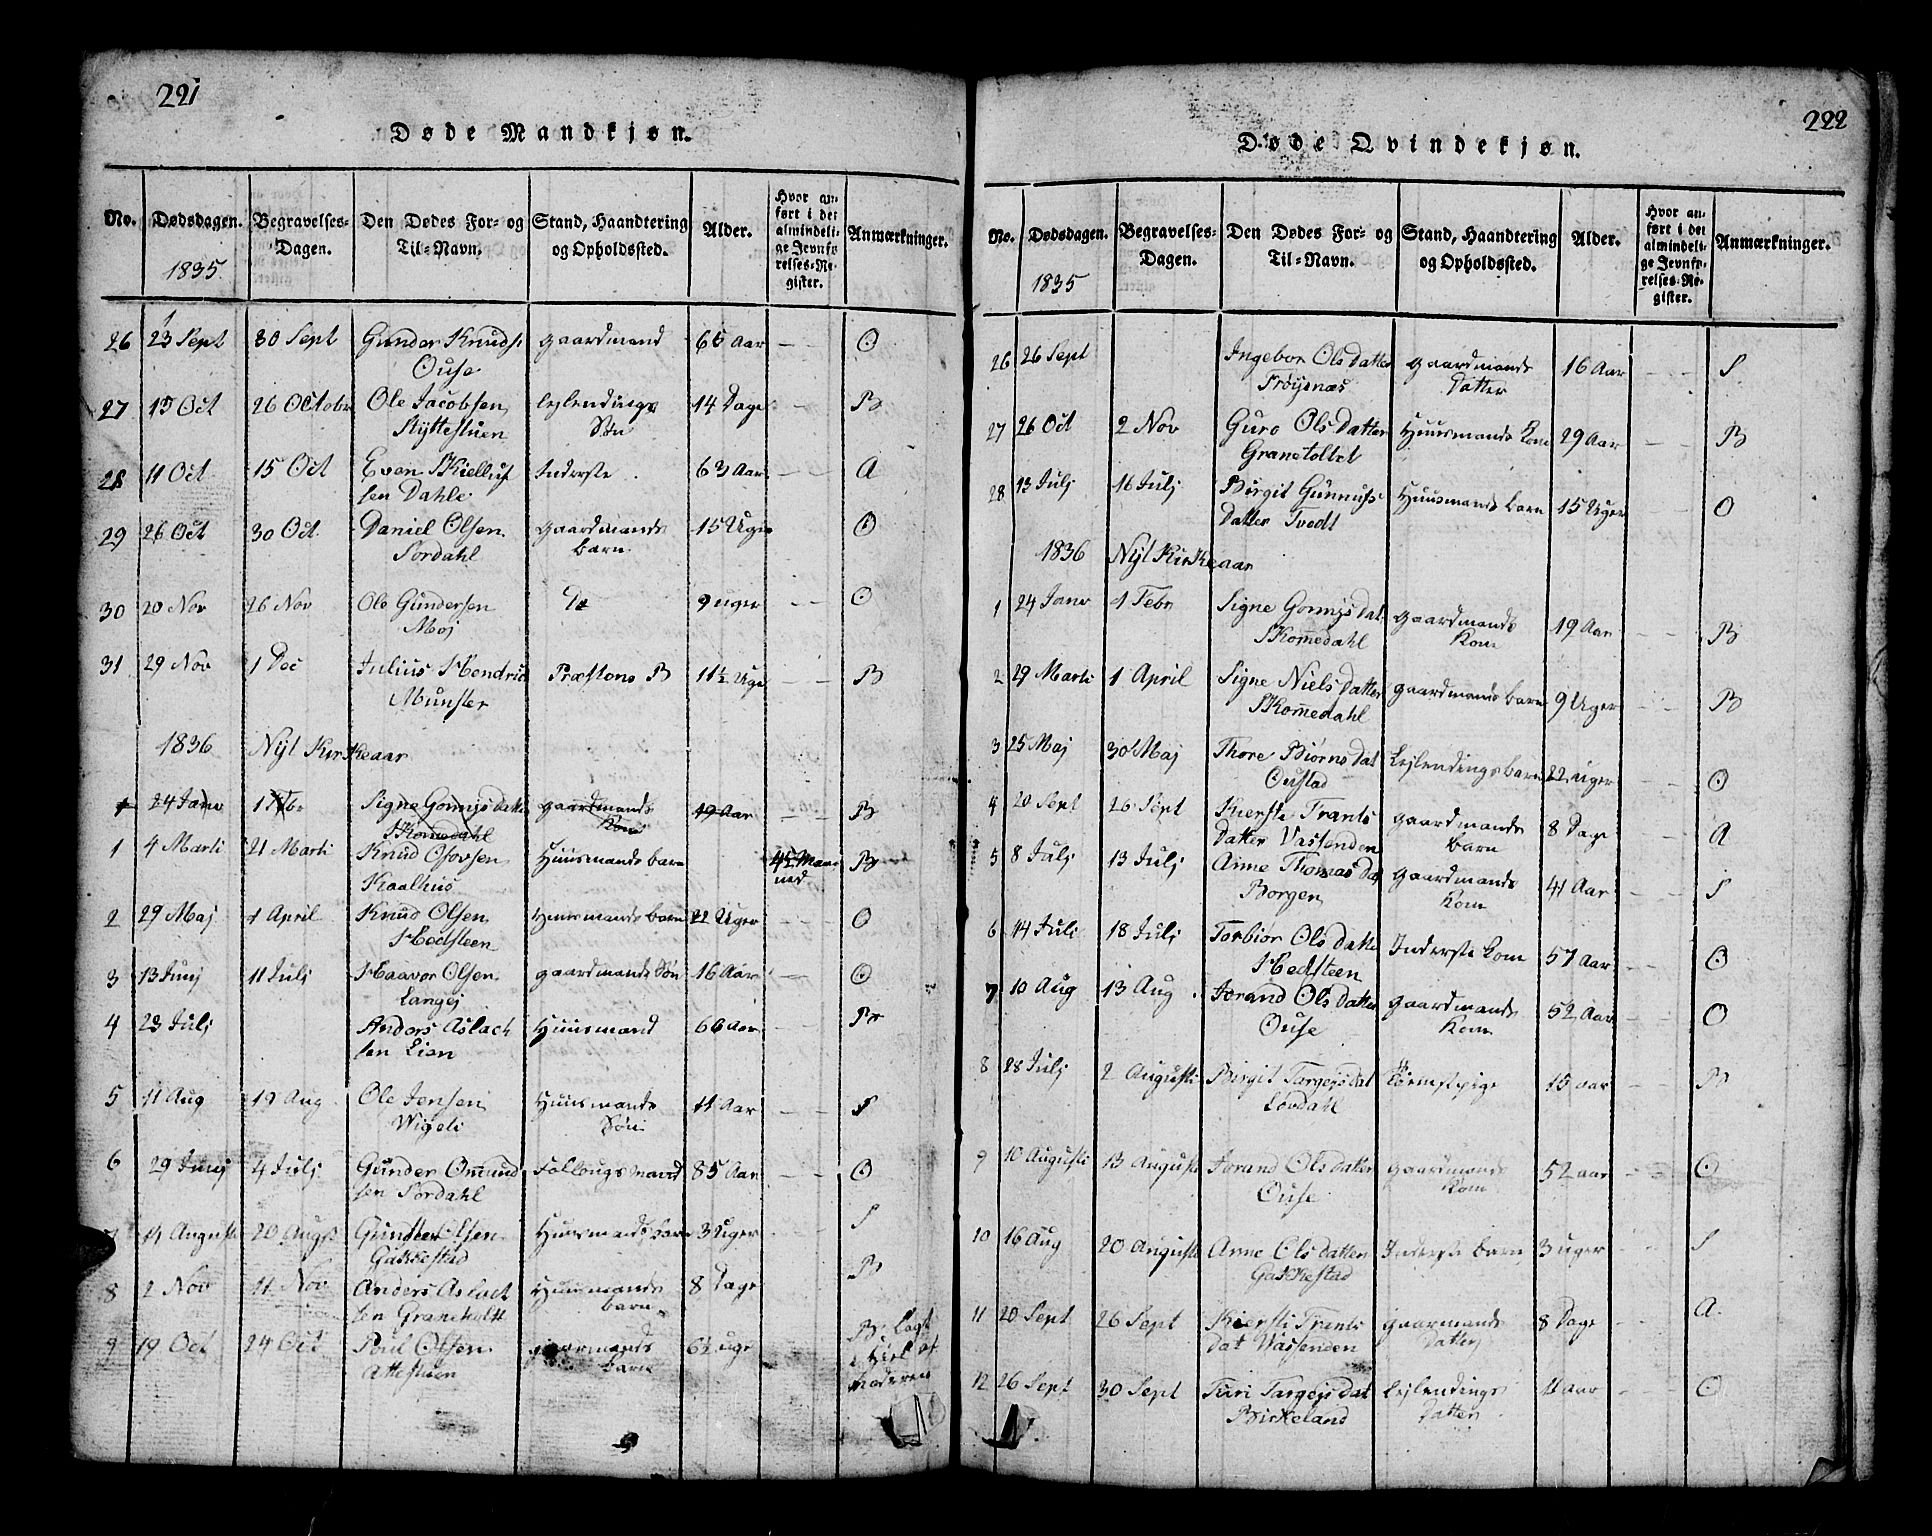 221
Døde Mandkjøn.
No. Dødsdagen. Begravelses-Dagen. Den Dødes For- og Til-Navn. Stand, Haandtering og Opholdssted. Alder. Hvor anført i det almindelige Jevnførelses-Register. Anmærkninger.
1835
26 23 Sept 30 Sept Gunder Knuds gaardmand 65 Aar — — O
Ouse
27 15 Oct 26 Octobr Ole Jacobsen lejlendings 14 Dage — — B
Styttestuen Søn
28 11 Oct 15 Oct Even Kielluf Inderste 63 Aar — — A
sen Dahle
29 26 Oct 30 Oct Daniel Olsen gaardmands 15 Uger O
Sordahl barn
30 20 Nov 26 Nov Ole Gundersen Do 9 uger — — O
Moj
31 29 Nov 1 Dec Julius Hendric Præstens B 11½ Uge — — B
Munster
1836 Nyt Kirkeaar
1 24 Janv 1 Febr Signe Gonnysdatter gaardmands 19 Aar — — B
Skomedahl Kone
1 4 Marti 21 Marti Knud Osovsen Huusmands barn 4½ Maa B
Kaalhus ned
2 29 Maj 1 April Knud Olsen Huusmands barn 22 Uger O
Hedsteen
3 13 Junj 11 Julj Haavor Olsen gaardmands Søn 16 Aar — O
Langej
4 23 Julj Anders Aslach Huusmand 66 Aar
sen Lien
5 11 Aug 19 Aug Ole Jensen Huusmands 11 Aar — — S
Wigeli Søn
6 29 Junj 4 Julj Gunder Omund Follougsmand 85 Aar — — O
sen Sordahl
7 14 Augusti 20 Augs Gunder Olsen Huusmands barn 3 Uger — S
Gakkestad
8 2 Nov 11 Nov Anders Aslach Huusmands 8 Dage B
sen Graneholtt barn
9 19 Oct 24 Oct Poul Olsen gaarmands 6½ uge B. Lagt
Attestuen barn i Hiel af
Moderen
222
Døde Qvindekjøn.
No. Dødsdagen. Begravelses-Dagen. Den Dødes For- og Til-Navn. Stand, Haandtering og Opholdssted. Alder. Hvor anført i det almindelige Jevnførelses-Register. Anmærkninger.
1835
26 26 Sept Ingebor Olsdatter gaardmands 16 Aar — — S
Frøysnæs Datter
27 26 Oct 2 Nov Guro Olsdatter Huusmands Kone 29 Aar — — B
Granetoltet
28 13 Julj 16 Julj Birgit Gunnufs Huusmands barn 15 Uger O
datter Tvedt
1836 Nyt Kirkeaar
1 24 Janv 1 Febr Signe Gonnysdat gaardmands 19 Aar — — B
Skomedahl Kone
2 29 Marti 1 April Signe Nielsdatter gaardmands barn 9 Uger — — B
Skomedahl
3 25 Maj 30 Maj Thore Biørnsdat Lejlendings barn 22 uger O
Oustad
4 20 Sept 26 Sept Kierste Frants gaardmands 8 Dage A
datter Vassenden barn
5 8 Julj 13 Julj Anne Thomasdat gaardmands 41 Aar — — S
Borgen Kone
6 14 Juli 18 Julj Torbior Olsdatter Inderste Kone 57 Aar — — O
Hedsteen
7 10 Aug 13 Aug Jorand Olsdatter gaardmands 52 Aar — — O
Ouse Kone
8 28 Julj 2 Augusti Birgit Targejsdat 15 aar — — B
Løvdahl
9 10 Augusti 13 Augusti Jorand Olsdatter gaardmands 52 aar — — O
Ouse Kone
10 16 Aug 20 Augusti Anne Olsdatter Inderste barn 3 uger — — S
Gakkestad
11 20 Sept 26 Sept Kiersti Frants gaarmands 8 Dage A.
dat Wassenden Datter
12 26 Sept 30 Sept Turi Targejsdat Lejlendings 11 aar — — O
Birkeland Datter